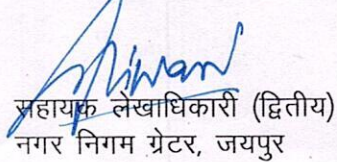 सहायक लेखाधिकारी (द्वितीय)
नगर निगम ग्रेटर, जयपुर